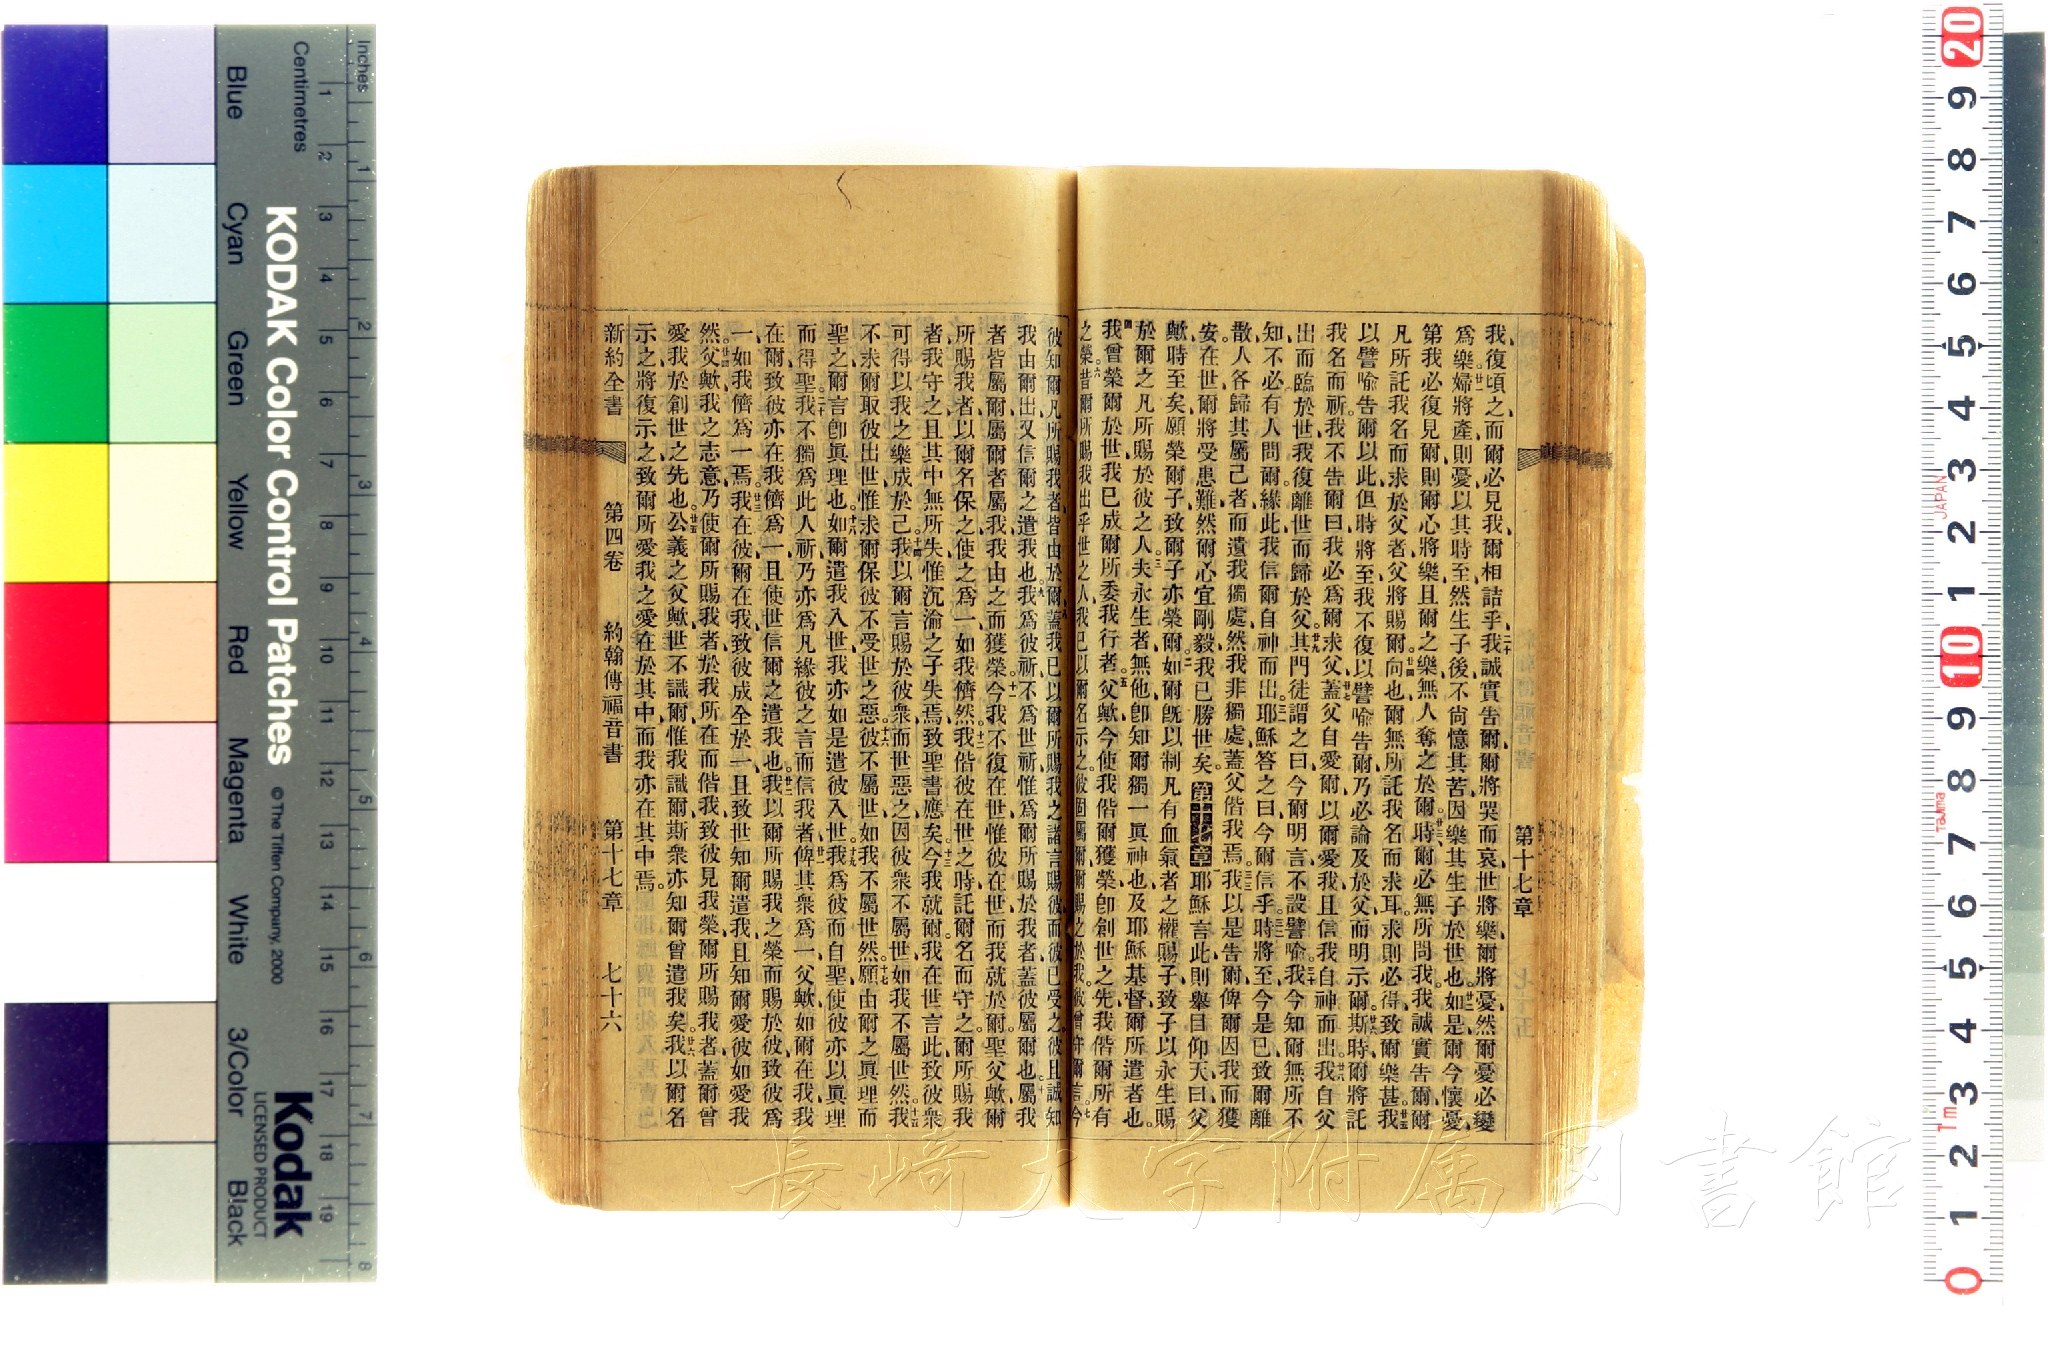 第十七章
我復頃之而爾必見我爾相詰乎二十我誠實告爾爾將哭而哀世將樂爾將憂然爾憂必變
爲樂廿一婦將產則憂以其時至然生子後不尙憶其苦因樂其生子於世也廿二如是爾今懷憂
第我必復見爾則爾心將樂且爾之樂無人奪之於爾廿三時爾必無所問我我誠實告爾爾
凡所託我名而求於父者父將賜爾廿四向也爾無所託我名而求耳求則必得致爾樂甚廿五我
以譬喻告爾以此但時將至我不復以譬喻告爾乃必論及於父而明示爾廿六斯時爾將託
我名而祈我不告爾曰我必爲爾求父廿七蓋父自愛爾以爾愛我且信我自神而出廿八我自父
出而臨於世我復離世而歸於父廿九其門徒謂之曰今爾明言不設譬喻三十我今知爾無所不
知不必有人問爾緣此我信爾自神而出三一耶穌答之曰今爾信乎三二時將至今是已致爾離
散人各歸其屬己者而遺我獨處然我非獨處蓋父偕我焉三三我以是告爾俾爾因我而獲
安在世爾將受患難然爾心宜剛毅我已勝世矣第十七章一耶穌言此則舉目仰天曰父
歟時至矣願榮爾子致爾子亦榮爾二如爾旣以制凡有血氣者之權賜子致子以永生賜
於爾之凡所賜於彼之人三夫永生者無他卽知爾獨一眞神也及耶穌基督爾所遣者也
四我曾榮爾於世我已成爾所委我行者五父歟今使我偕爾獲榮卽創世之先我偕爾所有
之榮六昔爾所賜我出乎世之人我已以爾名示之彼固屬爾爾賜之於我彼曾守爾言七今
彼知爾凡所賜我者皆由於爾八蓋我已以爾所賜我之諸言賜彼而彼已受之彼且誠知
我由爾出又信爾之遣我也九我爲彼祈不爲世祈惟爲爾所賜於我者蓋彼屬爾也十屬我
者皆屬爾屬爾者屬我我由之而獲榮十一今我不復在世惟彼在世而我就於爾聖父歟爾
所賜我者以爾名保之使之爲一如我儕然十二我偕彼在世之時託爾名而守之爾所賜我
者我守之且其中無所失惟沉淪之子失焉致聖書應矣十三今我就爾我在世言此致彼衆
可得以我之樂成於己十四我以爾言賜於彼衆而世惡之因彼衆不屬世如我不屬世然十五我
不求爾取彼出世惟求爾保彼不受世之惡十六彼不屬世如我不屬世然十七願由爾之眞理而
聖之爾言卽眞理也十八如爾遣我入世我亦如是遣彼入世十九我爲彼而自聖使彼亦以眞理
而得聖二十我不獨爲此人祈乃亦爲凡緣彼之言而信我者廿一俾其衆爲一父歟如爾在我我
在爾致彼亦在我儕爲一且使世信爾之遣我也廿二我以爾所賜我之榮而賜於彼致彼爲
一如我儕爲一焉廿三我在彼爾在我致彼成全於一且致世知爾遣我且知爾愛彼如愛我
然廿四父歟我之志意乃使爾所賜我者於我所在而偕我致彼見我榮爾所賜我者蓋爾曾
愛我於創世之先也廿五公義之父歟世不識爾惟我識爾斯衆亦知爾曾遣我矣廿六我以爾名
示之將復示之致爾所愛我之愛在於其中而我亦在其中焉
新約全書 第四卷 約翰傳福音書 第十七章 七十六
Inches
Centimetres
KODAK Color Control Patches
© The Tiffen Company, 2000
Kodak
LICENSED PRODUCT
Blue Cyan Green Yellow Red Magenta White 3/Color Black
1 2 3 4 5 6 7 8
1 2 3 4 5 6 7 8 9 10 11 12 13 14 15 16 17 18 19
20 9 8 7 6 5 4 3 2 1 10 9 8 7 6 5 4 3 2 1 0
JAPAN
Tajima
Tm
長崎大学附属図書館